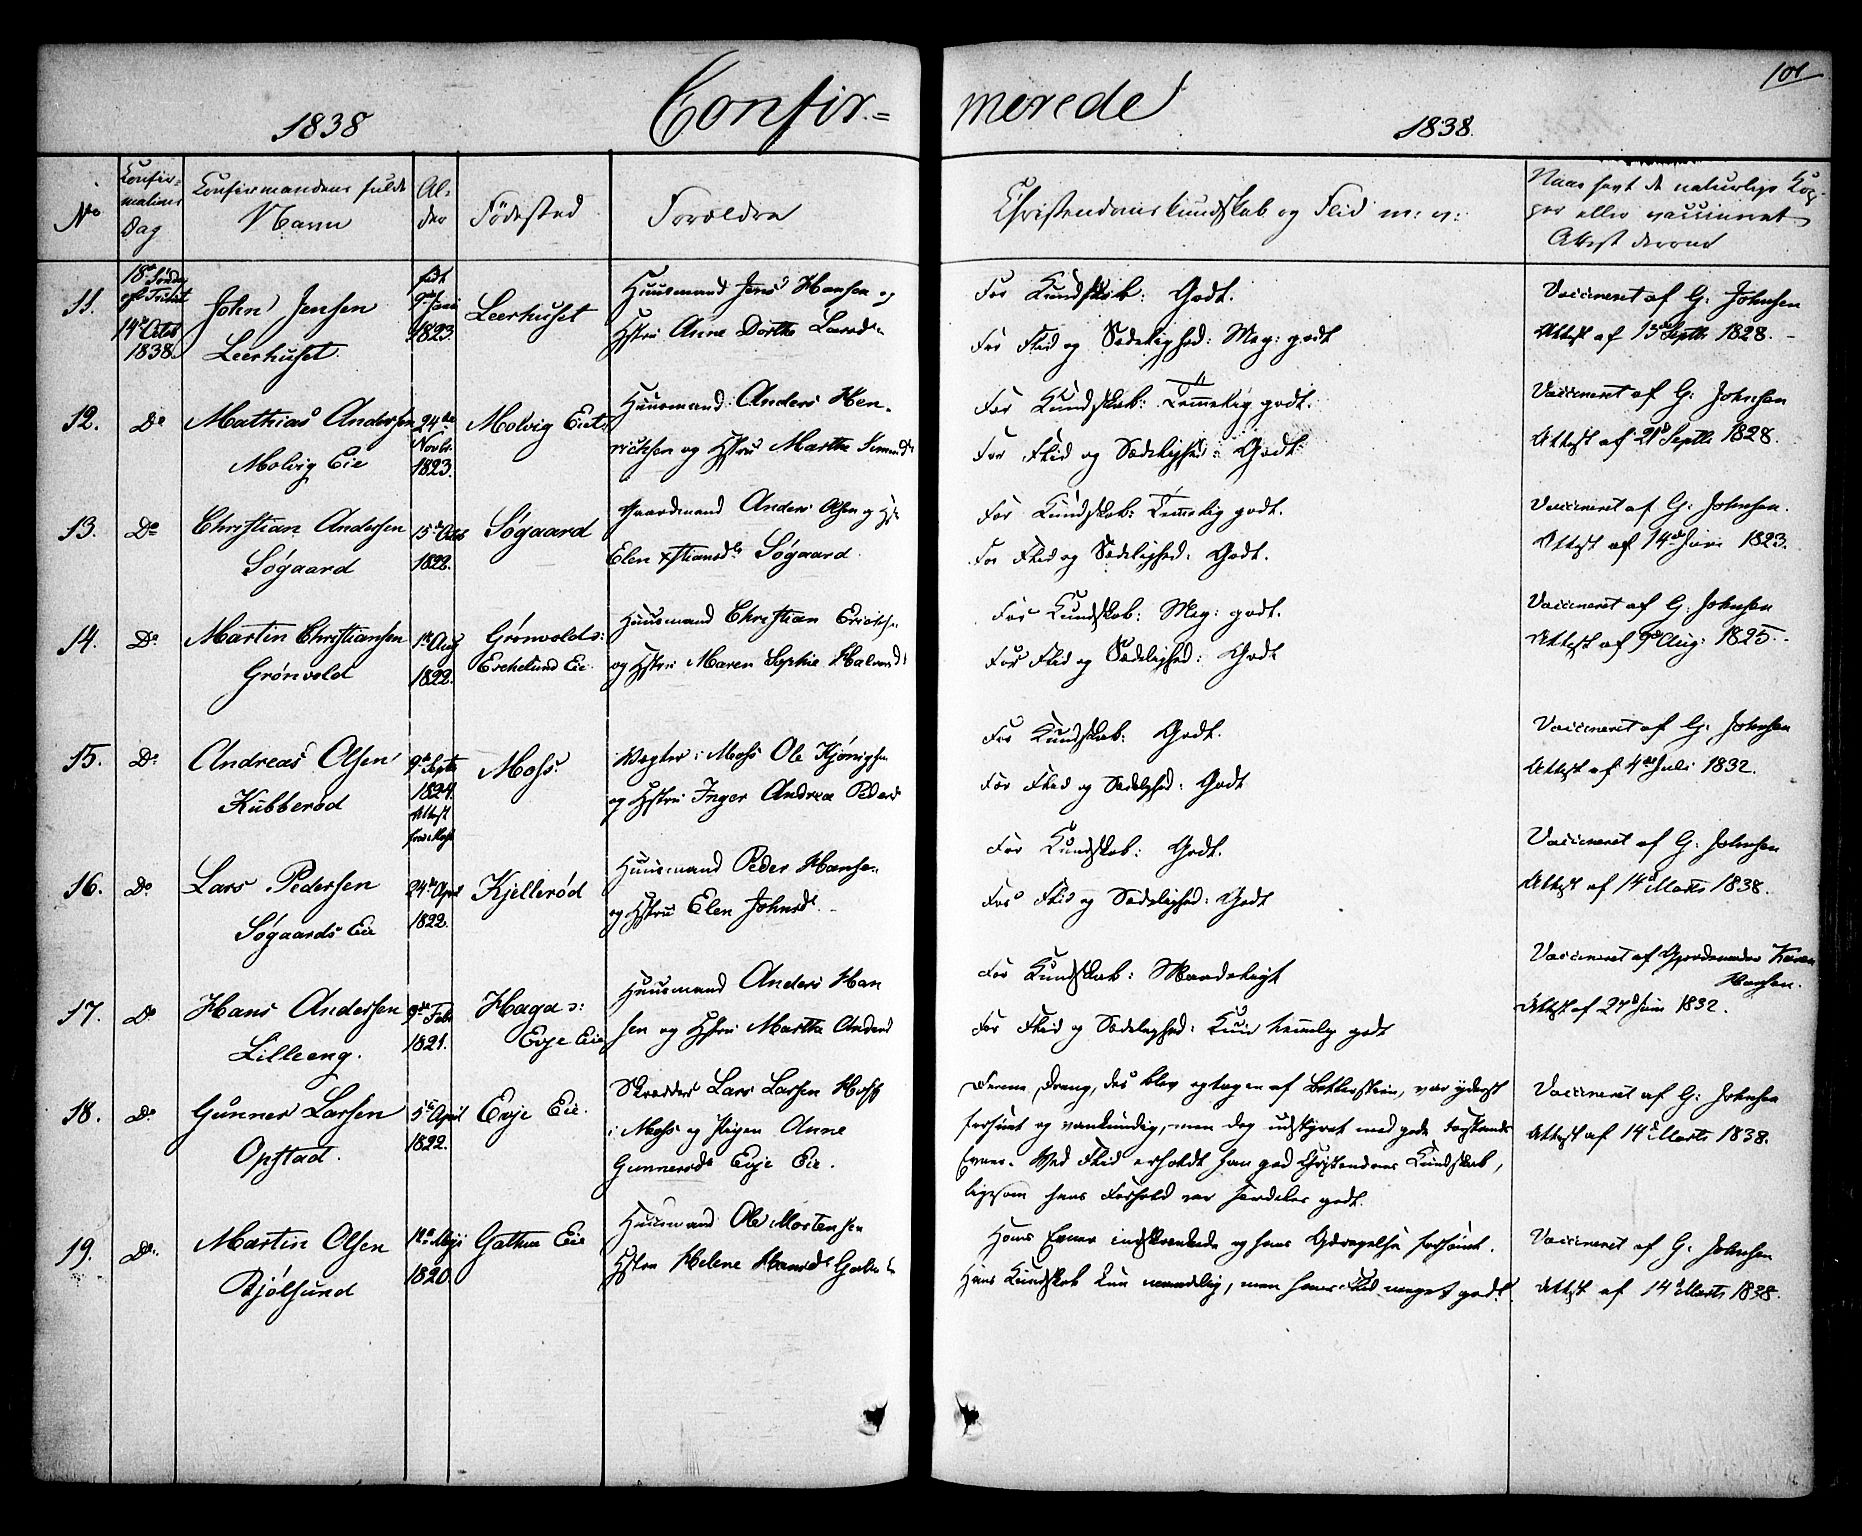 1838
Confir=
merede
1838.
101
No
Confir=
mations
Dag
Confirmandens fulde
Navn
Al-
der
Fødested
Forældre
Christendomskundskab og Flid m: v:
Naar havt de naturlige Kop-
per eller vaccineret
Attest derom
11.
18de Søndag
14de Octbr
1838.
John Jensen
Leerhuset.
født
9de Juni
1823.
Leerhuset
Huusmand Jens Hansen og
Hstru Anne Dorthe Larsd.
For Kundskab: Godt.
For Flid og Sædelighed: Meg: godt
Vaccineret af G. Johnsen
Attest af 13de Septb. 1828. -
12.
Do
Mathias Andersen
Molvig Eie
24de
Novbr.
1823.
Molvig Eiet
Huusmand Anders Hen-
richsen og Hstru Marthe Simensd.
For Kundskab: Temmelig godt.
For Flid og Sædelighed: Godt
Vaccineret af G. Johnsen
Attest af 21de Septb. 1828.
13.
Do
Christian Andersen
Søgaard
15de Octb
1822.
Søgaard
Gaardmand Anders Olsen og Hst.
Elen Xstiansd. Søgaard.
For Kundskab: Temmelig godt.
For Flid og Sædelighed: Godt.
Vaccineret af G. Johnsen.
Attest af 14de Juni 1823.
14.
Do
Martin Christiansen
Grønvold
1ste Aug
1822.
Grønvolds:
Eschelund Eie
Huusmand Christian Erichs.
og Hstru Maren Sophie Halvorsd.
For Kundskab: Meg: godt.
For Flid og Sædelighed: Godt
Vaccineret af G. Johnsen
Attest af 9de Aug: 1825.
15.
Do
Andreas Olsen
Kubberød
9de Septb
1824.
Attest
fra Moss
Moss.
Vægter i Moss Ole Kjønigsen
og Hstru Inger Andrea Pedersd.
For Kundskab: Godt.
For Flid og Sædelighed: Godt
Vaccineret af G. Johnsen
Attest af 4de Juli 1832.
16.
Do
Lars Pedersen
Søgaards Eie
24de April
1822.
Kjellerød
Huusmand Peder Hansen
og Hstru Elen Johnsd.
For Kundskab: Godt.
For Flid og Sædelighed: Godt
Vaccineret af G. Johnsen
Attest af 14de Marts 1838.
17.
Do
Hans Andersen
Lilleeng.
9de Febr
1821.
Haga s:
Evje Eie
Huusmand Anders Han
sen og Hstru Marthe Andersd
For Kundskab: Maadeligt
For Flid og Sædelighed: Kun temmelig godt
Vaccineret af Gjordemoder Karen
Hansen.
Attest af 27de Juni 1832.
18.
Do
Gunner Larsen
Opstad.
5te April
1822.
Evje Eie.
Skrædder Lars Larsen Hoff
i Moss og Pigen Anne
Gunnersd. Evje Eie.
Denne Dreng, der blev optagen af Betlerstien, var yderst
forsømt og vankundig, men dog udstyret med gode Forstands
Evner. Ved Flid erholdt han god Christendoms Kundskab,
ligesom hans Forhold var særdeles godt.
Vaccineret af G. Johnsen
Attest af 14de Marts 1838.
19.
Do.
Martin Olsen
Bjølsund
12te Maji
1820
Gathue Eie
Huusmand Ole Mortensen
Hstru Helene Hansd.
Hans Evner indskrænkede og hans Opdragelse forsømt.
Hans Kundskab kun maadelig, men hans Flid meget godt.
Vaccineret af G. Johnsen
Attest af 14de Marts 1838.